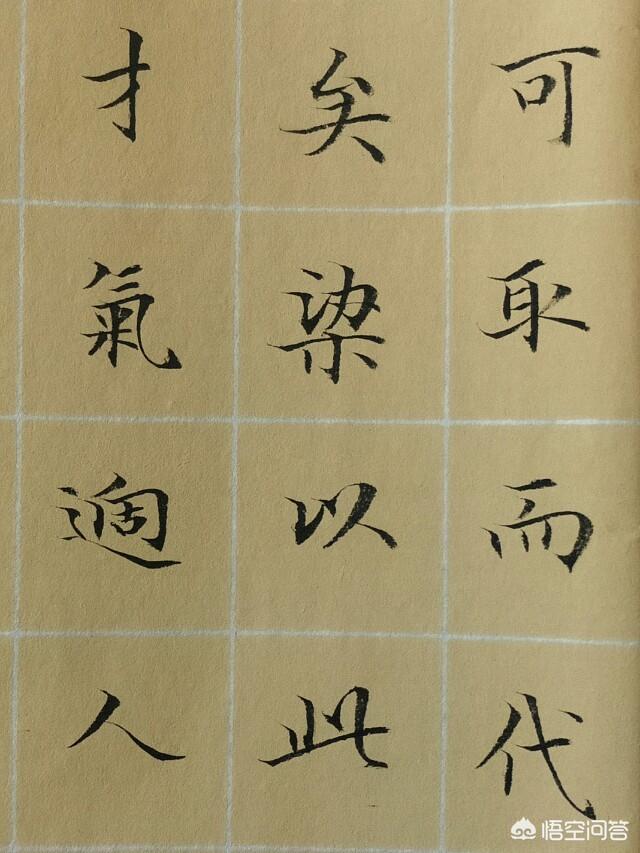 可取而代
矣梁以此
才氣過人
悟空问答